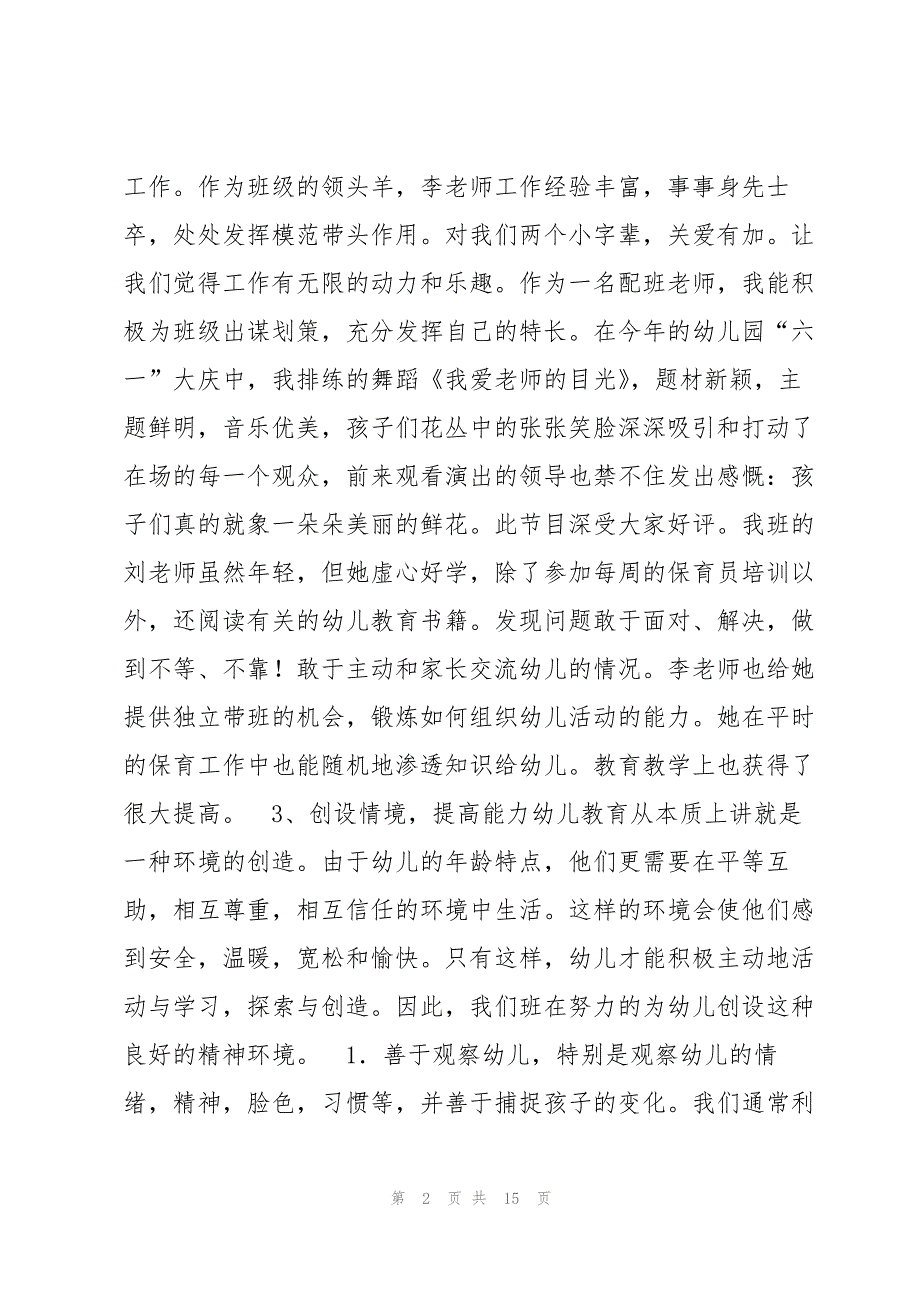 工作。作为班级的领头羊，李老师工作经验丰富，事事身先士
卒，处处发挥模范带头作用。对我们两个小字辈，关爱有加。让
我们觉得工作有无限的动力和乐趣。作为一名配班老师，我能积
极为班级出谋划策，充分发挥自己的特长。在今年的幼儿园“六
一”大庆中，我排练的舞蹈《我爱老师的目光》，题材新颖，主
题鲜明，音乐优美，孩子们花丛中的张张笑脸深深吸引和打动了
在场的每一个观众，前来观看演出的领导也禁不住发出感慨：孩
子们真的就象一朵朵美丽的鲜花。此节目深受大家好评。我班的
刘老师虽然年轻，但她虚心好学，除了参加每周的保育员培训以
外，还阅读有关的幼儿教育书籍。发现问题敢于面对、解决，做
到不等、不靠！敢于主动和家长交流幼儿的情况。李老师也给她
提供独立带班的机会，锻炼如何组织幼儿活动的能力。她在平时
的保育工作中也能随机地渗透知识给幼儿。教育教学上也获得了
很大提高。 3、创设情境，提高能力幼儿教育从本质上讲就是
一种环境的创造。由于幼儿的年龄特点，他们更需要在平等互
助，相互尊重，相互信任的环境中生活。这样的环境会使他们感
到安全，温暖，宽松和愉快。只有这样，幼儿才能积极主动地活
动与学习，探索与创造。因此，我们班在努力的为幼儿创设这种
良好的精神环境。 1．善于观察幼儿，特别是观察幼儿的情
绪，精神，脸色，习惯等，并善于捕捉孩子的变化。我们通常利
第 2 页 共 15 页